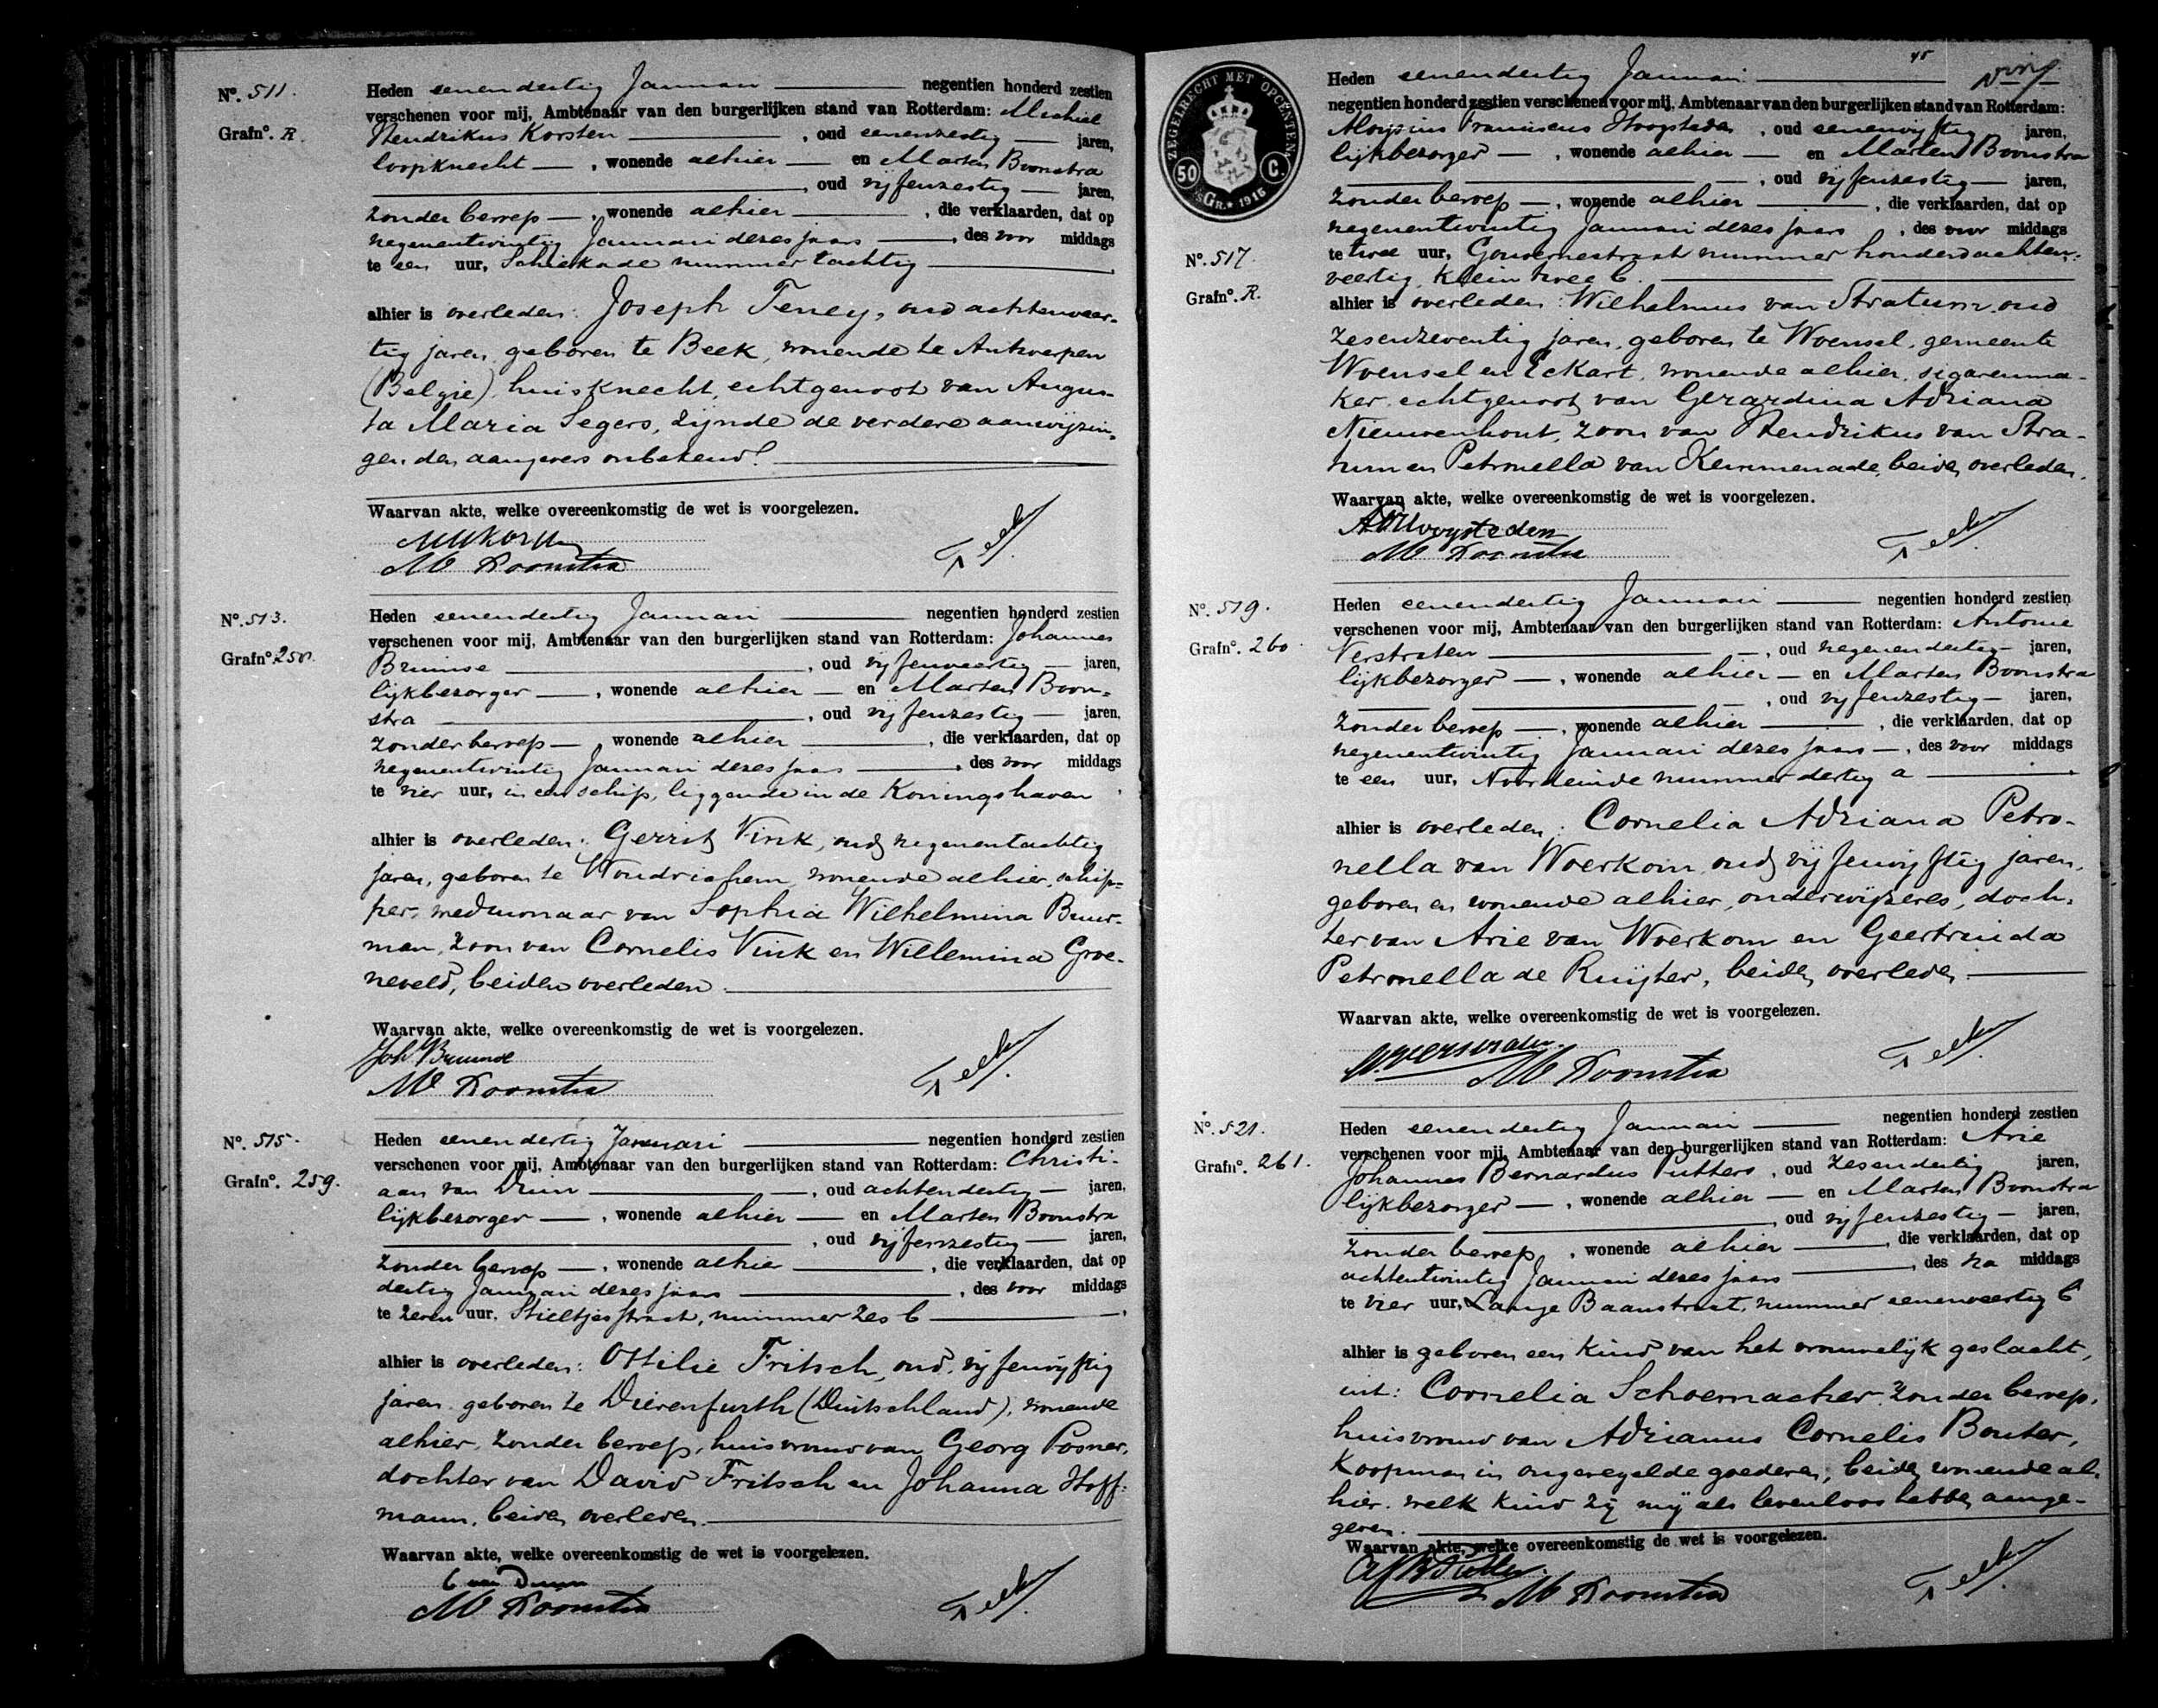 Nº. 511.
Grafnº. R.
Heden eenendertig Januari negentien honderd zestien
verschenen voor mij, Ambtenaar van den burgerlijken stand van Rotterdam: Michiel
Hendrikus Korsten, oud eenenzestig jaren,
loopknecht, wonende alhier en Marten Boonstra
, oud vijfenzestig jaren,
zonder beroep, wonende alhier, die verklaarden, dat op
negenentwintig Januari dezes jaars, des voor middags
te een uur, Schiekade nummer tachtig
alhier is overleden: Joseph Teney, oud achtenveer-
tig jaren, geboren te Beek, wonende te Antwerpen
(België), huisknecht, echtgenoot van Augus-
ta Maria Segers, zijnde de verdere aanwijzin-
gen den aangevers onbekend.
Waarvan akte, welke overeenkomstig de wet is voorgelezen.
M Boonstra
Nº. 513.
Grafnº 250.
Heden eenendertig Januari negentien honderd zestien
verschenen voor mij, Ambtenaar van den burgerlijken stand van Rotterdam: Johannes
Bruinse, oud vijfenveertig jaren,
lijkbezorger, wonende alhier en Marten Boon-
stra, oud vijfenzestig jaren,
zonder beroep, wonende alhier, die verklaarden, dat op
negenentwintig Januari dezes jaars, des voor middags
te vier uur, in een schip, liggende in de Koningshaven
alhier is overleden: Gerrit Vink, oud negenentachtig
jaren, geboren te Woudrichem, wonende alhier, schip-
per, weduwnaar van Sophia Wilhelmina Buur-
man, zoon van Cornelis Vink en Willemina Groe-
neveld, beiden overleden.
Waarvan akte, welke overeenkomstig de wet is voorgelezen.
Joh Bruinse
M Boonstra
Nº. 515.
Grafnº. 259.
Heden eenendertig Januari negentien honderd zestien
verschenen voor mij, Ambtenaar van den burgerlijken stand van Rotterdam: Christi-
aan van Duin, oud achtendertig jaren,
lijkbezorger, wonende alhier en Marten Boonstra
, oud vijfenzestig jaren,
zonder beroep, wonende alhier, die verklaarden, dat op
dertig Januari dezes jaars, des voor middags
te zeven uur, Stieltjesstraat, nummer zes b
alhier is overleden: Ottilie Fritsch, oud vijfenvijftig
jaren, geboren te Dierenfurth (Duitschland), wonende
alhier, zonder beroep, huisvrouw van Georg Posner,
dochter van David Fritsch en Johanna Hoff-
mann, beiden overleden.
Waarvan akte, welke overeenkomstig de wet is voorgelezen.
C van Duin
M Boonstra
45
ZEGELRECHT MET OPCENTEN
50 C.
'sGR. 1915
Heden eenendertig Januari
negentien honderd zestien verschenen voor mij, Ambtenaar van den burgerlijken stand van Rotterdam:
Aloysius Franciscus Hoogsteden, oud eenenvijftig jaren,
lijkbezorger, wonende alhier en Marten Boonstra
, oud vijfenzestig jaren,
zonder beroep, wonende alhier, die verklaarden, dat op
negenentwintig Januari dezes jaars, des voor middags
Nº. 517.
te twee uur, Gouvernestraat nummer honderdachten-
veertig, klein twee b.
Grafnº. R.
alhier is overleden: Wilhelmus van Stratum, oud
zesenzeventig jaren, geboren te Woensel, gemeente
Woensel en Eckart, wonende alhier, sigarenma-
ker, echtgenoot van Gerardina Adriana
Nieuwenhout, zoon van Hendrikus van Stra-
tum en Petronella van Kemmenade, beiden overleden.
Waarvan akte, welke overeenkomstig de wet is voorgelezen.
AF Hoogsteden
M Boonstra
Nº. 519.
Grafnº. 260.
Heden eenendertig Januari negentien honderd zestien
verschenen voor mij, Ambtenaar van den burgerlijken stand van Rotterdam: Antonie
Verstraten, oud negenendertig jaren,
lijkbezorger, wonende alhier en Marten Boonstra
, oud vijfenzestig jaren,
zonder beroep, wonende alhier, die verklaarden, dat op
negenentwintig Januari dezes jaars, des voor middags
te een uur, Noordeinde nummer dertig a
alhier is overleden: Cornelia Adriana Petro-
nella van Woerkom, oud vijfenvijftig jaren,
geboren en wonende alhier, onderwijzeres, doch-
ter van Arie van Woerkom en Geertruida
Petronella de Ruijter, beiden overleden.
Waarvan akte, welke overeenkomstig de wet is voorgelezen.
A. Verstraten.
M Boonstra
Nº. 521.
Grafnº. 261.
Heden eenendertig Januari negentien honderd zestien
verschenen voor mij, Ambtenaar van den burgerlijken stand van Rotterdam: Arie
Johannes Bernardus Putters, oud zesendertig jaren,
lijkbezorger, wonende alhier en Marten Boonstra
, oud vijfenzestig jaren,
zonder beroep, wonende alhier, die verklaarden, dat op
achtentwintig Januari dezes jaars, des na middags
te vier uur, Lange Baanstraat, nummer eenenveertig b
alhier is geboren een kind van het vrouwelijk geslacht,
uit: Cornelia Schoemacher, zonder beroep,
huisvrouw van Adrianus Cornelis Bouter,
koopman in ongeregelde goederen, beiden wonende al-
hier, welk kind zij mij als levenloos hebben aange-
geven.
Waarvan akte, welke overeenkomstig de wet is voorgelezen.
AJB Putters.
M Boonstra